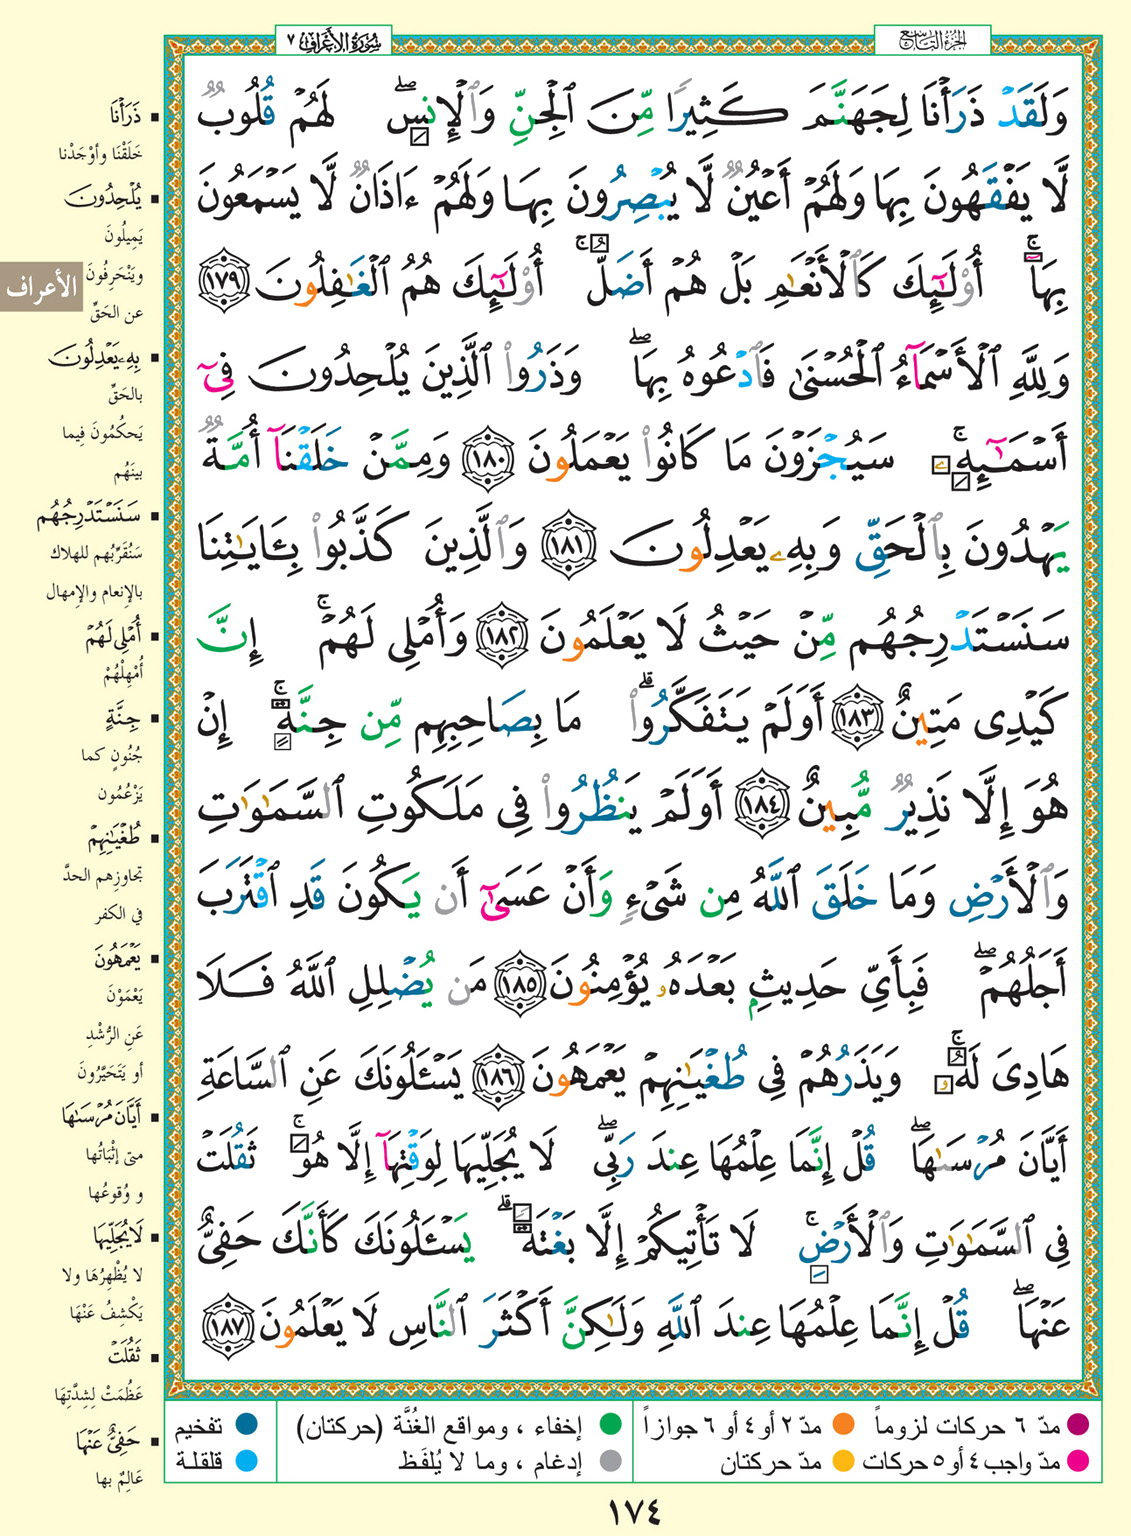 سُورَةُ الأَعْرَافِ ٧
الجُزءُ التَّاسِعُ
وَلَقَدْ ذَرَأْنَا لِجَهَنَّمَ كَثِيرًا مِّنَ ٱلْجِنِّ وَٱلْإِنسِ ۖ لَهُمْ قُلُوبٌ
لَّا يَفْقَهُونَ بِهَا وَلَهُمْ أَعْيُنٌ لَّا يُبْصِرُونَ بِهَا وَلَهُمْ ءَاذَانٌ لَّا يَسْمَعُونَ
بِهَآ ۚ أُو۟لَـٰٓئِكَ كَٱلْأَنْعَـٰمِ بَلْ هُمْ أَضَلُّ ۚ أُو۟لَـٰٓئِكَ هُمُ ٱلْغَـٰفِلُونَ ١٧٩
وَلِلَّهِ ٱلْأَسْمَآءُ ٱلْحُسْنَىٰ فَٱدْعُوهُ بِهَا ۖ وَذَرُوا۟ ٱلَّذِينَ يُلْحِدُونَ فِىٓ
أَسْمَـٰٓئِهِۦ ۚ سَيُجْزَوْنَ مَا كَانُوا۟ يَعْمَلُونَ ١٨٠ وَمِمَّنْ خَلَقْنَآ أُمَّةٌ
يَهْدُونَ بِٱلْحَقِّ وَبِهِۦ يَعْدِلُونَ ١٨١ وَٱلَّذِينَ كَذَّبُوا۟ بِـَٔايَـٰتِنَا
سَنَسْتَدْرِجُهُم مِّنْ حَيْثُ لَا يَعْلَمُونَ ١٨٢ وَأُمْلِى لَهُمْ ۚ إِنَّ
كَيْدِى مَتِينٌ ١٨٣ أَوَلَمْ يَتَفَكَّرُوا۟ ۗ مَا بِصَاحِبِهِم مِّن جِنَّةٍ ۚ إِنْ
هُوَ إِلَّا نَذِيرٌ مُّبِينٌ ١٨٤ أَوَلَمْ يَنظُرُوا۟ فِى مَلَكُوتِ ٱلسَّمَـٰوَٰتِ
وَٱلْأَرْضِ وَمَا خَلَقَ ٱللَّهُ مِن شَىْءٍ وَأَنْ عَسَىٰٓ أَن يَكُونَ قَدِ ٱقْتَرَبَ
أَجَلُهُمْ ۖ فَبِأَىِّ حَدِيثٍۭ بَعْدَهُۥ يُؤْمِنُونَ ١٨٥ مَن يُضْلِلِ ٱللَّهُ فَلَا
هَادِىَ لَهُۥ ۚ وَيَذَرُهُمْ فِى طُغْيَـٰنِهِمْ يَعْمَهُونَ ١٨٦ يَسْـَٔلُونَكَ عَنِ ٱلسَّاعَةِ
أَيَّانَ مُرْسَىٰهَا ۖ قُلْ إِنَّمَا عِلْمُهَا عِندَ رَبِّى ۖ لَا يُجَلِّيهَا لِوَقْتِهَآ إِلَّا هُوَ ۚ ثَقُلَتْ
فِى ٱلسَّمَـٰوَٰتِ وَٱلْأَرْضِ ۚ لَا تَأْتِيكُمْ إِلَّا بَغْتَةً ۗ يَسْـَٔلُونَكَ كَأَنَّكَ حَفِىٌّ
عَنْهَا ۖ قُلْ إِنَّمَا عِلْمُهَا عِندَ ٱللَّهِ وَلَـٰكِنَّ أَكْثَرَ ٱلنَّاسِ لَا يَعْلَمُونَ ١٨٧
ذَرَأْنَا
خَلَقْنَا وأوْجَدْنا
يُلْحِدُونَ
يَمِيلُونَ
ويَنْحَرِفُونَ
عن الحَقِّ
بِهِۦ يَعْدِلُونَ
بالحَقِّ
يَحكُمُونَ فِيما
بينَهُم
سَنَسْتَدْرِجُهُم
سَنُقَرِّبُهم للهلاك
بالإنعام والإمهال
أُمْلِى لَهُمْ
أُمْهِلُهُمْ
جِنَّةٍ
جُنُونٍ كما
يَزْعُمُون
طُغْيَـٰنِهِمْ
تجاوزِهم الحدَّ
في الكفر
يَعْمَهُونَ
يَعْمَوْنَ
عَنِ الرُّشْدِ
أو يَتَحَيَّرُونَ
أَيَّانَ مُرْسَىٰهَا
متى إثْبَاتُها
و وُقوعُها
لَا يُجَلِّيهَا
لا يُظْهِرُهَا ولا
يَكْشِفُ عَنْهَا
ثَقُلَتْ
عَظُمَتْ لِشِدَّتِهَا
حَفِىٌّ عَنْهَا
عَالِمٌ بها
الأعراف
مدّ ٦ حركات لزوماً
مدّ ٢ أو ٤ أو ٦ جوازاً
إخفاء ، ومواقع الغُنَّة (حركتان)
تفخيم
مدّ واجب ٤ أو ٥ حركات
مدّ حركتان
إدغام ، وما لا يُلفَظ
قلقلة
١٧٤